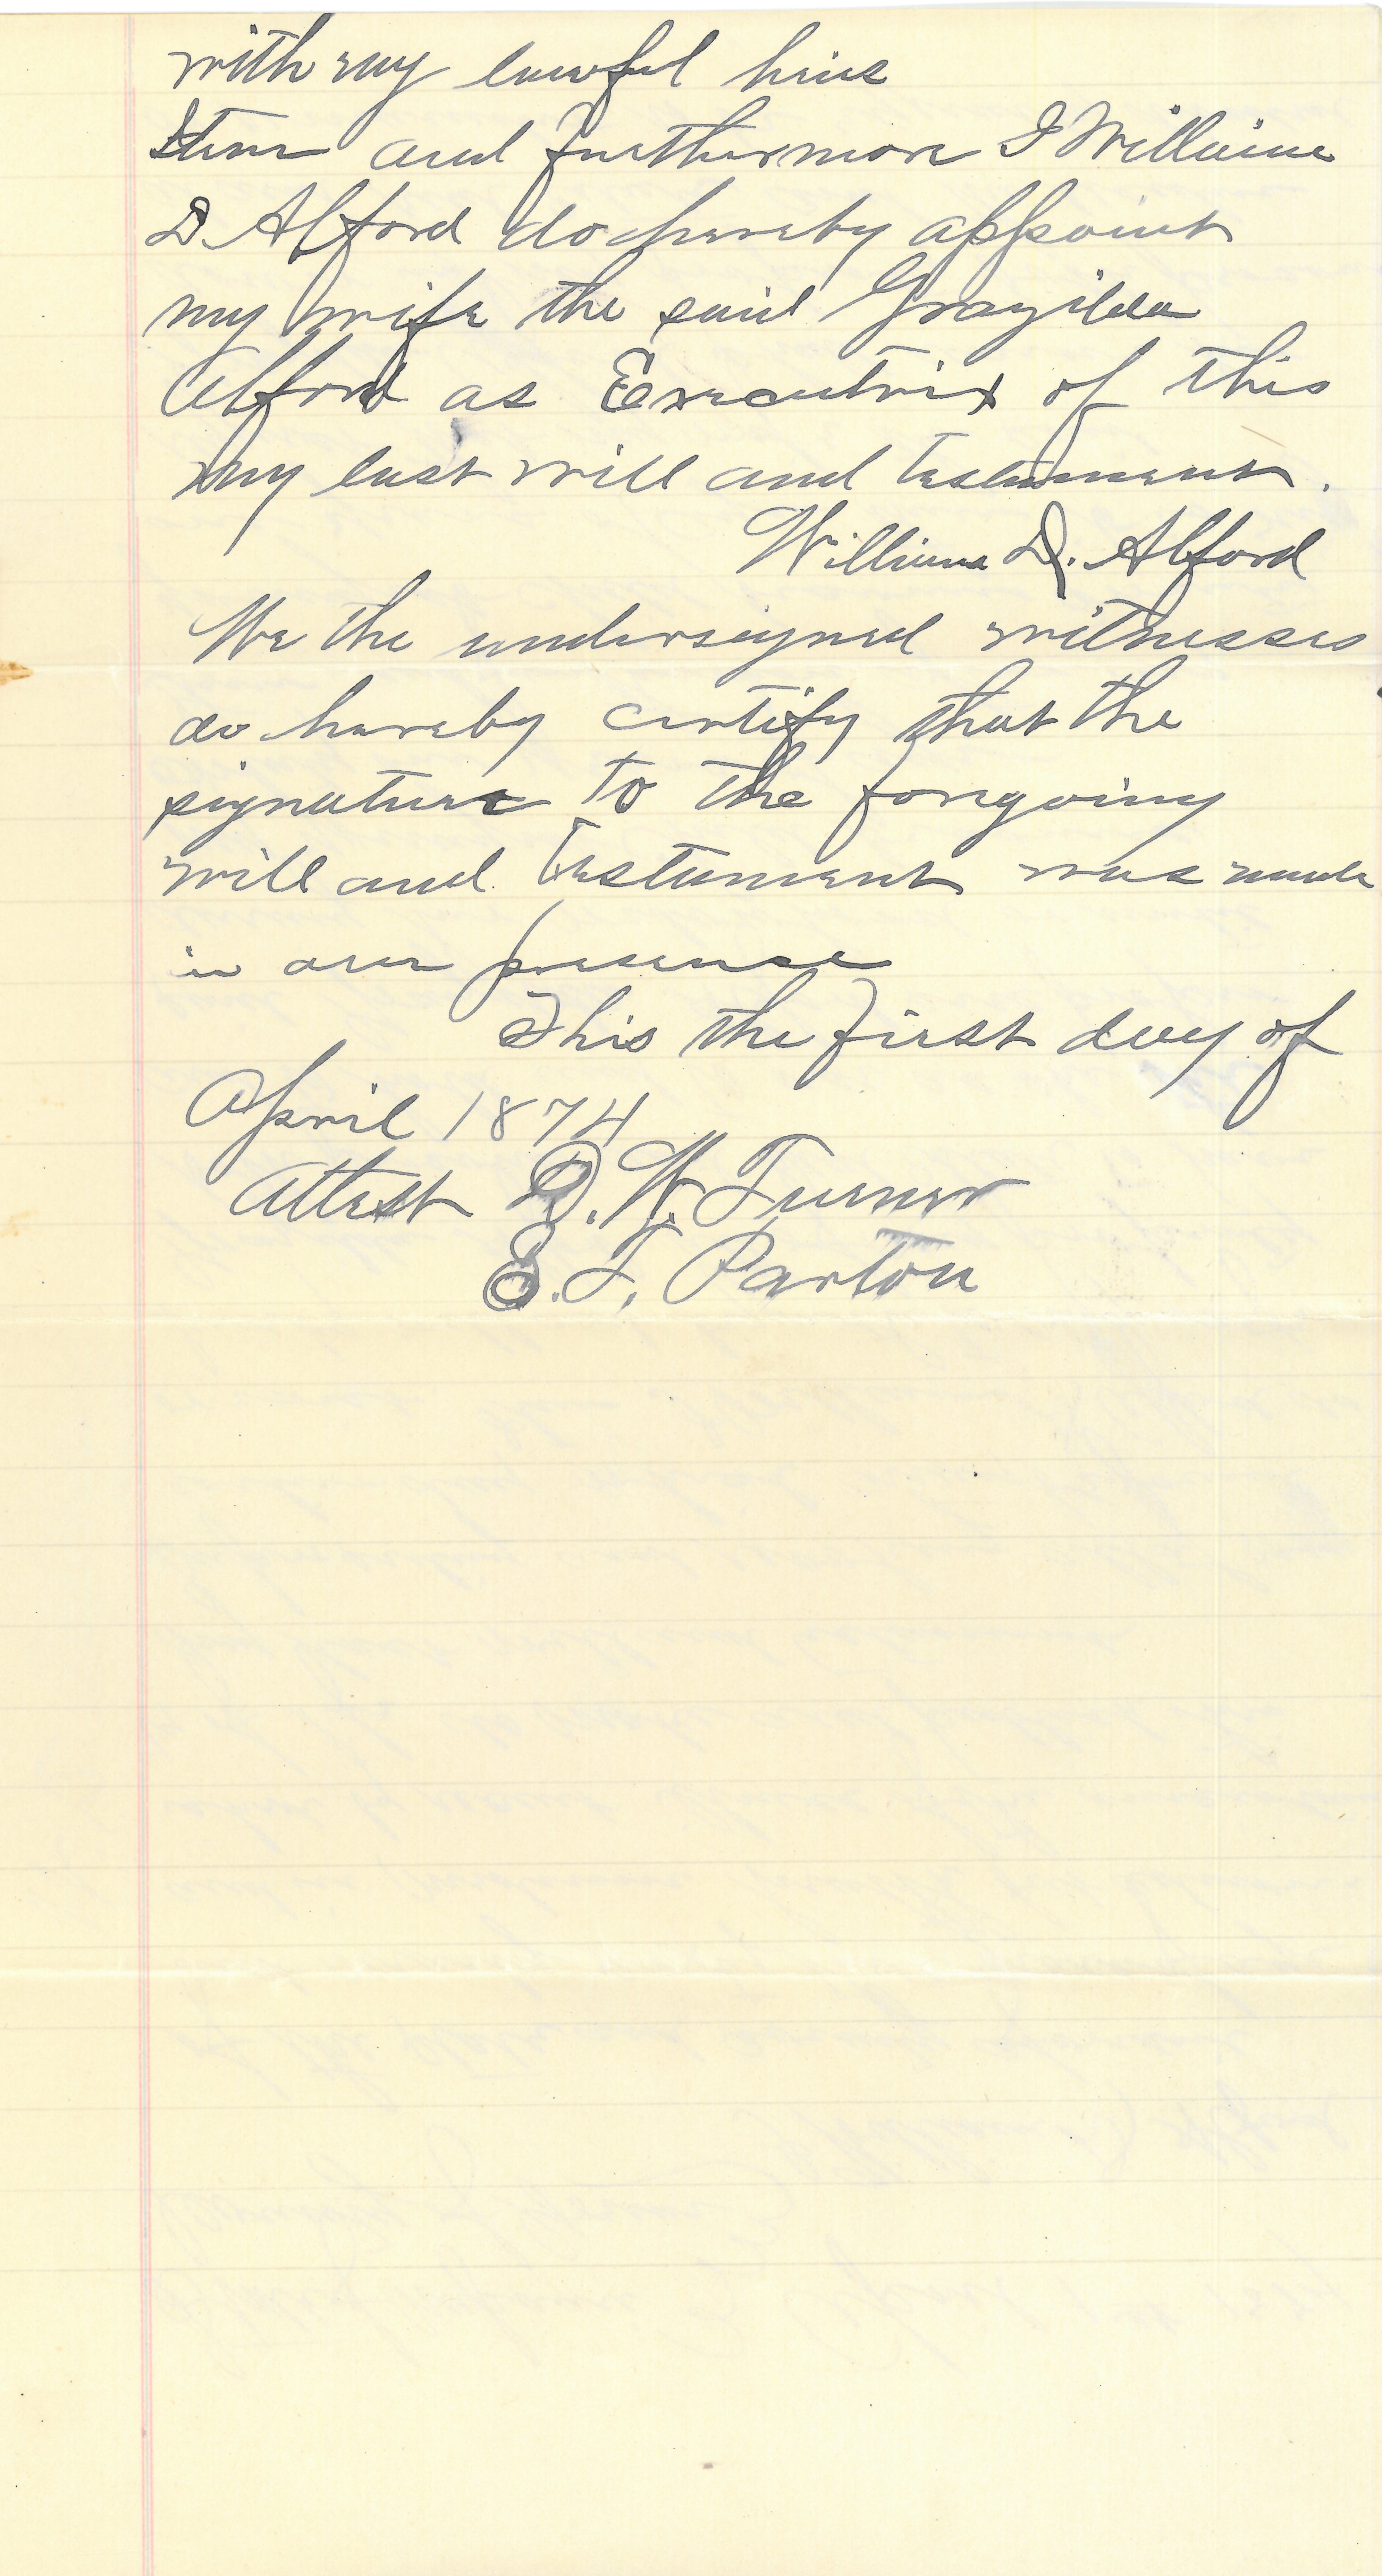 with my lawful heirs
Item and furthermore I William
D. Alford do hereby appoint
my wife the said Grazilda
Alford as Executrix of this
my last will and testament.
William D. Alford
We the undersigned witnesses
do hereby certify that the
signature to the foregoing
will and testament was made
in our presence
This the first day of
April 1874
Attest D. W. Turner
E. T. Parton